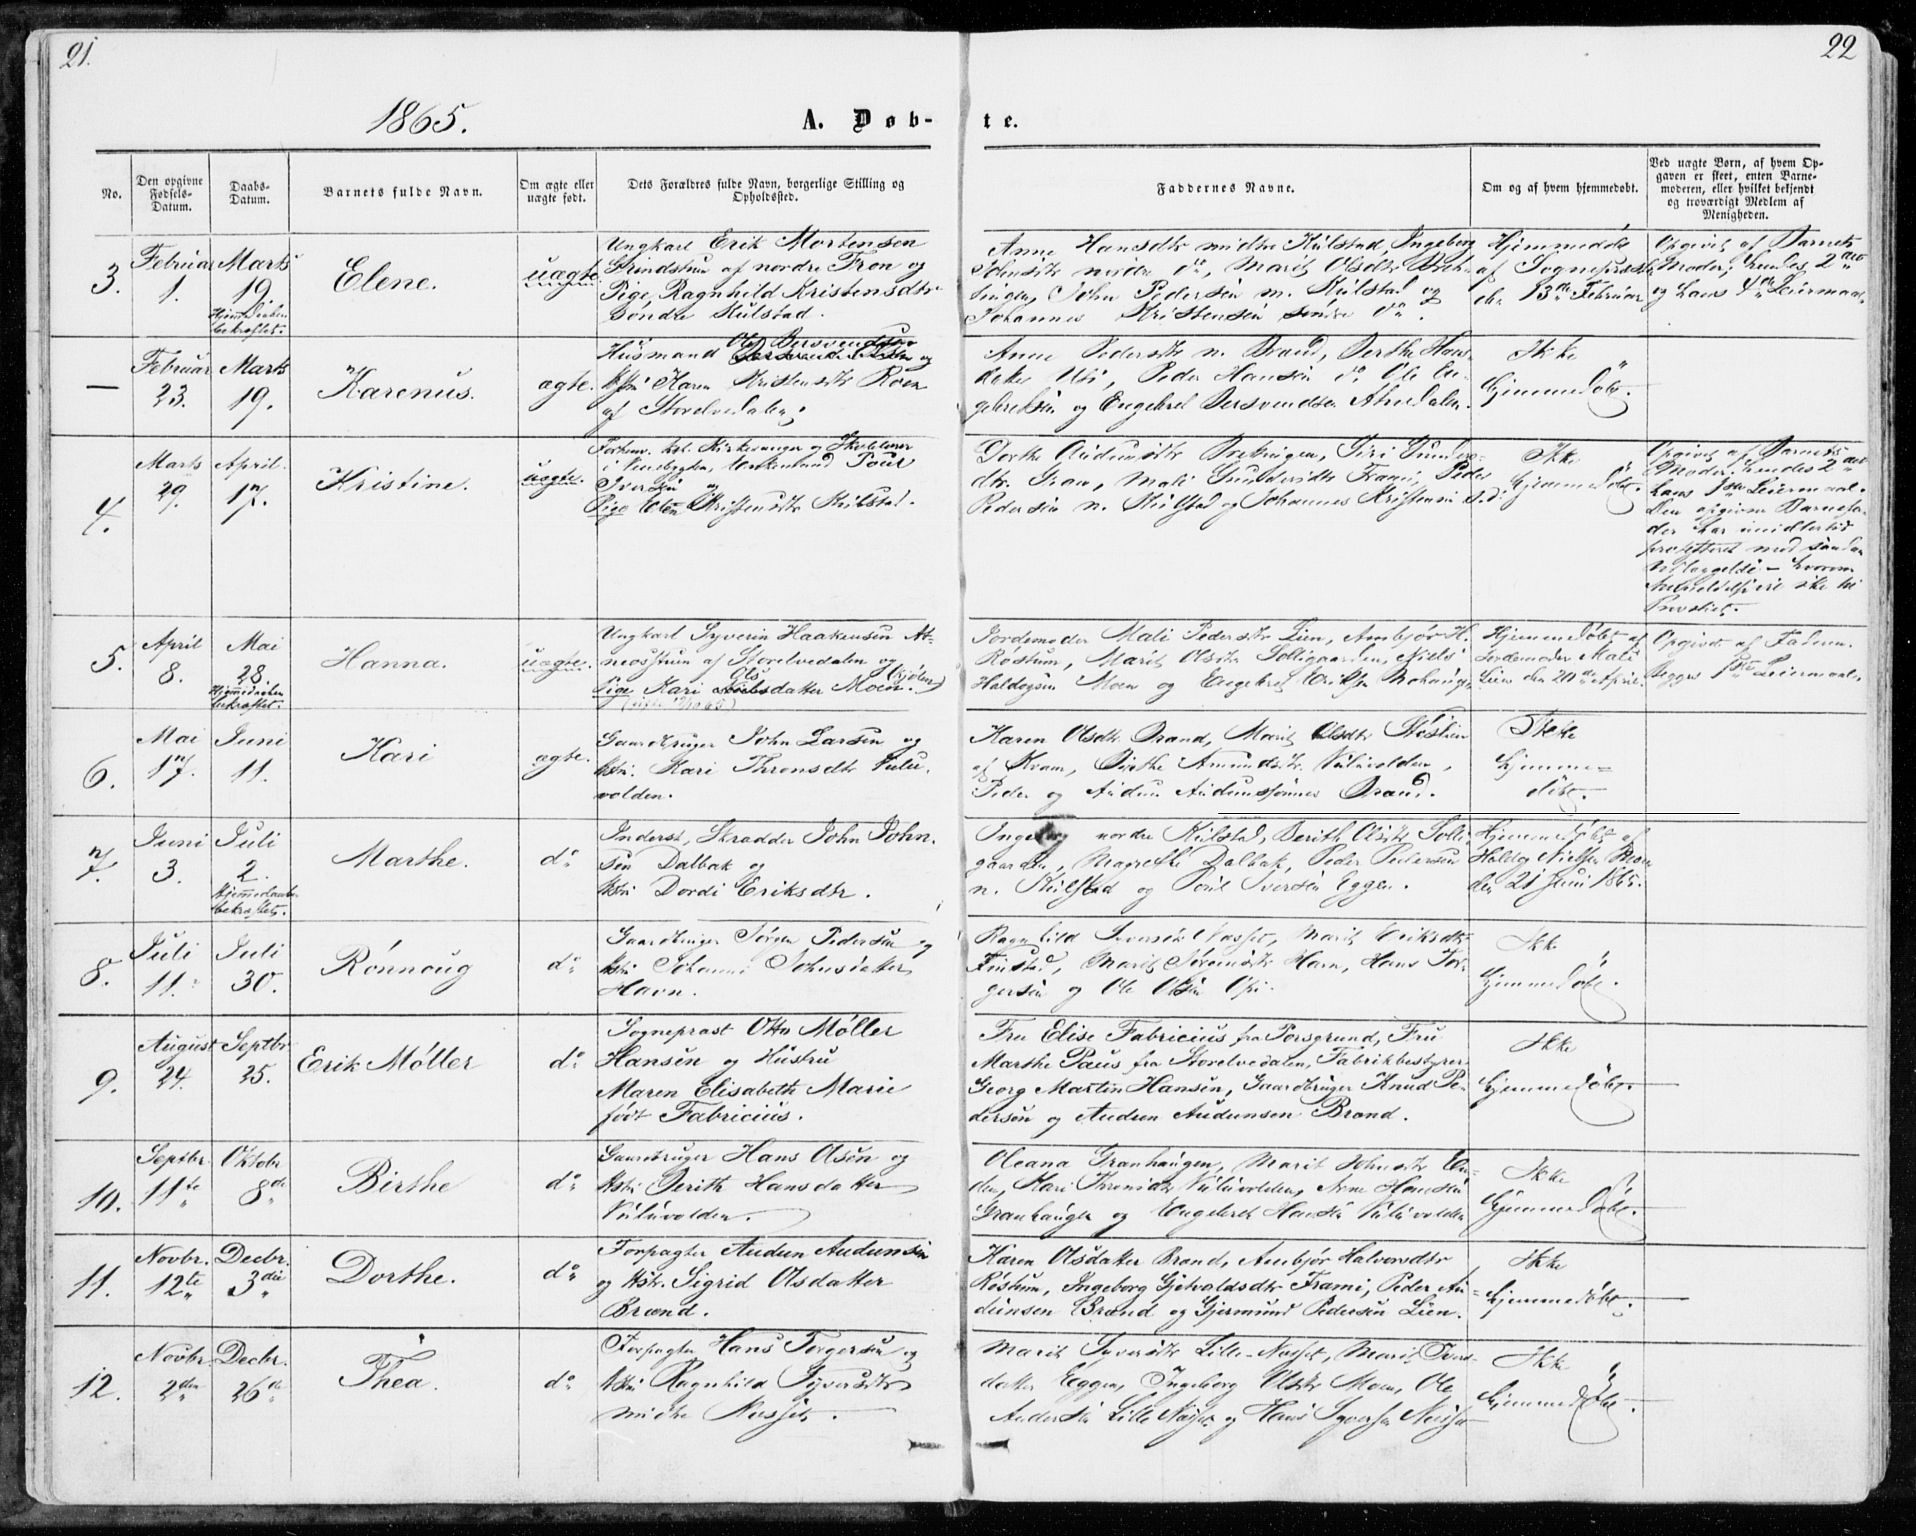 21.
22
1865.
A. Døb-
te.
No.
Den opgivne Fødsels-Datum.
Daabs-Datum.
Barnets fulde Navn.
Om ægte eller uægte født.
Dets Forældres fulde Navn, borgerlige Stilling og Opholdssted.
Faddernes Navne.
Om og af hvem hjemmedøbt.
Ved uægte Børn, af hvem Opgaven er skeet, enten Barnemoderen, eller hvilket bekjendt og troværdigt Medlem af Menigheden.
3.
Februar
1.
Marts
19
Hjemmedaaben
bekræftet.
Elene.
uægte
Ungkarl Erik Mortensen
af nordre Tron og
Pige, Ragnhild Kristensdtr
søndre Kulstad.
Anne Hansdtr midtre Kulstad, Ingeborg
Johnsdtr nordre do, Marit Olsdtr
John Pedersen n. Kulstad og
Johannes Kristensen søndre do.
Hjemmedøbt
af Sognepræst
den 13de Februar
Opgivet af Barnets
Moder; hendes 2det
og hans 4de Leiermaal.
—
Februar
23.
Marts
19.
Karenus.
ægte.
Ole Bersvendsen
Husmand
og
Hstr Karen Kristensdtr Roen
af Storelvedalen.
Anne Pedersdtr n. Brænd, Berthe
Peder Hansen do Ole
og Engebret Bersvendsen
Ikke
hjemmedøbt.
4.
Marts
29.
April.
17.
Kristine.
uægte.
Forhenv. Kirkesanger og Skolelærer
Poul
Iversen og
Pige Elen Kristensdtr Kulstad.
Dorthe Audunsdtr
Peder
Pedersen n. Kulstad og Johannes Kristensen s. d.
Ikke
hjemmedøbt.
Opgivet af Barnets
Moder. Hendes 2det
hans 1ste Leiermaal.
Den opgivne Barnefa-
der har imidlertid
5.
April
8.
Mai
28.
Hjemmedaaben
bekræftet.
Hanna.
uægte.
Ungkarl Syverin Haakensen At-
neosen af Storelvedalen og
Ols
Pige Kari datter Moen. (Kjølen)
Jordemoder Mali Pedersdtr Lien, Ambjør H.
Røstum, Marit Olsdtr Solligaarden, Niels
Haldogsen Moen og Engebret Eriksen
Hjemmedøbt af
Jordemoder Mali
Lien den 20de April.
Opgivet af Faderen.
Begges 1ste Leiermaal.
6.
Mai
17.
Juni
11.
Kari
ægte.
Gaardbruger John Larsen og
Hstr. Kari Thronsdtr Vulu-
volden.
Karen Olsdtr Brænd, Marit Olsdtr
af Kvam, Birthe Amundsdtr Vuluvolden,
Peder og Audun Audunssønner Brænd.
Ikke
hjemme-
døbt.
7.
Juni
3.
Juli
2.
Hjemmedaaben
bekræftet.
Marthe.
do
Inderst, Skrædder John John-
sen Dalbak og
Hstr. Dordi Eriksdtr.
Ingeborg nordre Kulstad, Berith Olsdtr Solli-
gaarden, Magrethe Dalbak, Peder Pedersen
n. Kulstad og Poul Iversen Eggen.
Hjemmedøbt af
Haldog Nielsen Moen
den 21 Juni 1865.
8.
Juli
11.
Juli
30.
Rønnoug
do
Gaardbruger Jørgen Pedersen og
Hstr Johanne Johnsdatter
Havn.
Ragnhild Iversdtr Næsset, Marit Eriksdtr
Finstad, Marit Jørgensdtr Havn, Hans Tor-
gersen og Ole Olsen
Ikke
hjemmedøbt.
9.
August
24.
Septbr
25.
Erik Møller
do
Sogneprest Otto Møller
Hansen og Hustru
Maren Elisabeth Marie
født Fabricius.
Fru Elise Fabricius fra Porsgrund, Fru
Marthe Paus fra Storelvedalen, Fabrikbestyrer
Georg Martin Hansen, Gaardbruger Knud Pe-
dersen og Audun Audunsen Brænd.
Ikke
hjemmedøbt.
10.
Septbr.
11te
Oktobr
8de
Birthe
do
Gaardbruger Hans Olsen og
Hstr Berith Hansdatter
Vuluvolden.
Oleana Granhaugen, Marit Johnsdtr En-
den, Kari Thronsdtr Vuluvolden, Arne Hansen
Granhaugen og Engebret Hansen Vuluvolden
Ikke
hjemmedøbt.
11.
Novbr.
12te
Decbr.
3die
Dorthe.
do
Forpagter Audun Audunsen
og Hstr. Sigrid Olsdatter
Brænd.
Karen Olsdatter Brænd, Ambjør Halvorsdtr
Røstum, Ingeborg Gjetvoldsdtr Frami, Peder Au-
dunsen Brænd og Gjermund Pedersen Lien.
Ikke
hjemmedøbt.
12.
Novbr
2den
Decbr.
26de
Thea.
do
Forpagter Hans Torgersen og
Hstr Ragnhild Syversdtr
midtre Næsset.
Marit Syversdtr Lille-Næsset, Marit Ivers-
datter Eggen, Ingeborg Olsdtr Moen, Ole
Andersen Lille Næsset og Hans Syversen Næsset
Ikke
hjemmedøbt.